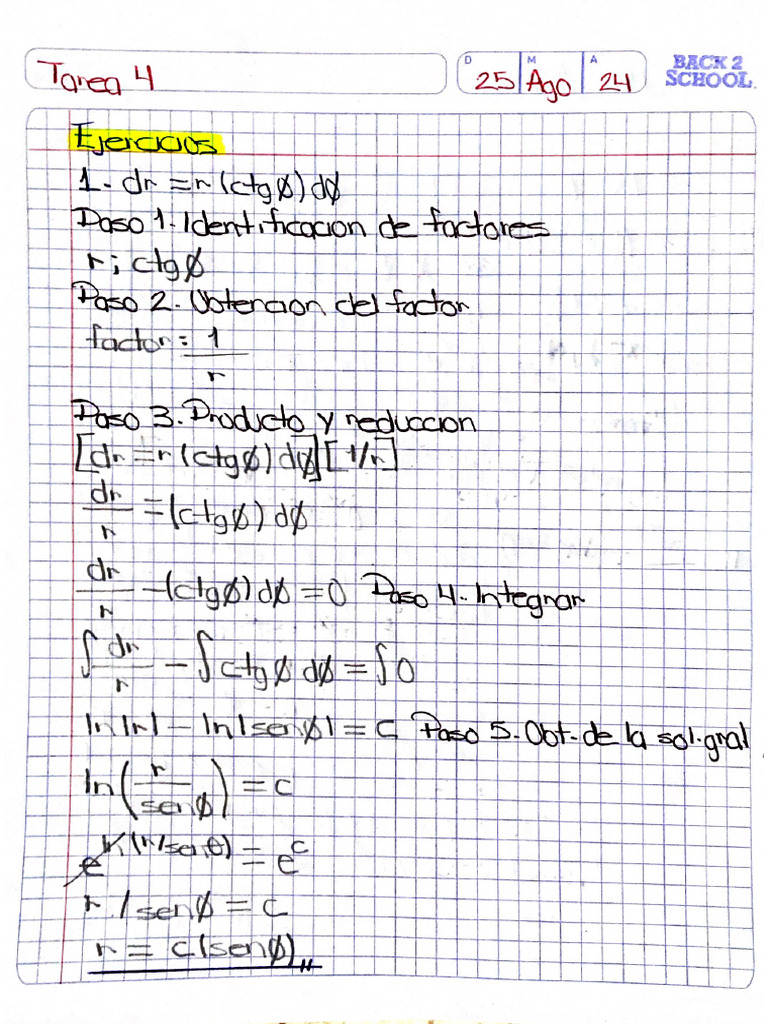 Tarea 4
D 25 M Ago A 24
BACK 2
SCHOOL
Ejercicios
1.- dr = r (ctg ø) dø
Paso 1.- Identificacion de factores
r ; ctg ø
Paso 2.- Obtencion del factor
factor = 1/r
Paso 3.- Producto y reduccion
[dr = r (ctg ø) dø] [1/r]
dr/r = (ctg ø) dø
dr/r - (ctg ø) dø = 0 Paso 4.- Integrar
∫ dr/r - ∫ ctg ø dø = ∫ 0
ln|r| - ln|sen ø| = c Paso 5.- Obt. de la sol. gral
ln (r/sen ø) = c
e^ln(r/sen θ) = e^c
r / sen ø = c
r = c (sen ø)